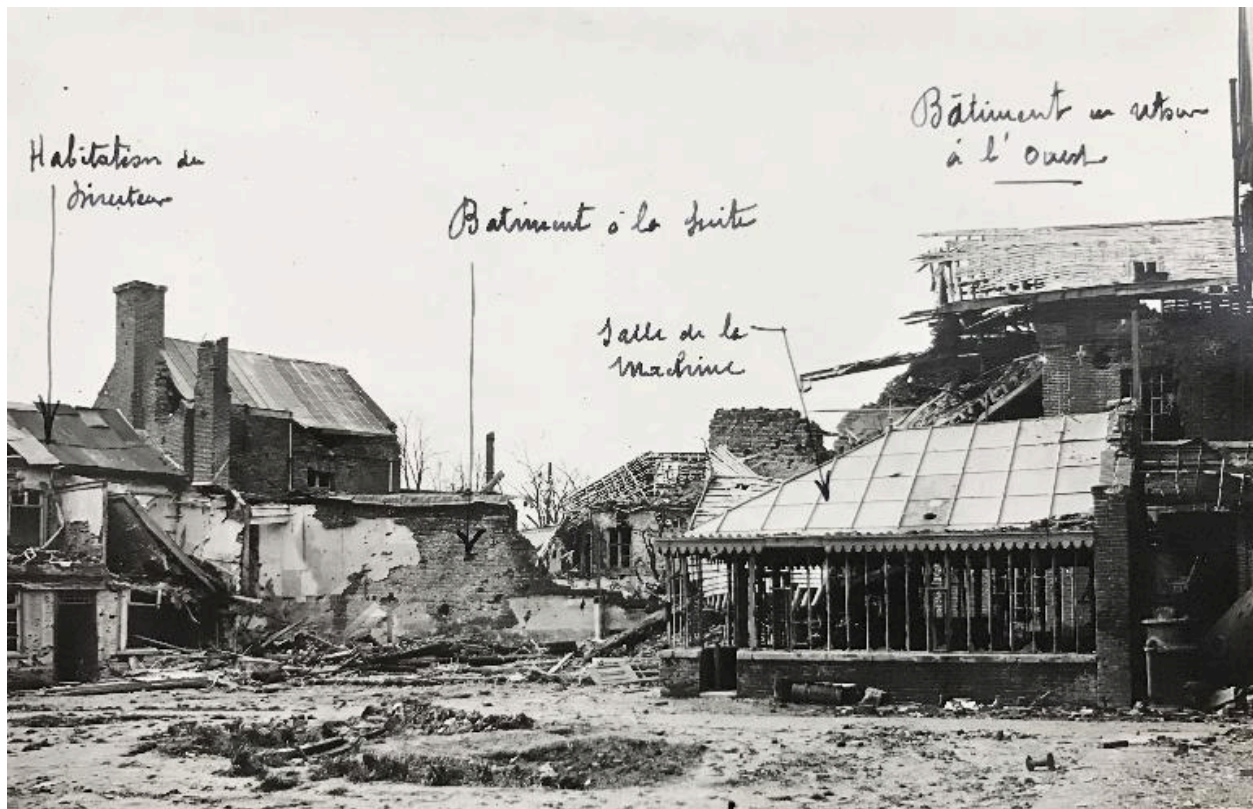 Habitation du
Directeur
Batiment à la suite
Salle de la
Machine
Bâtiment en retour
à l'Ouest